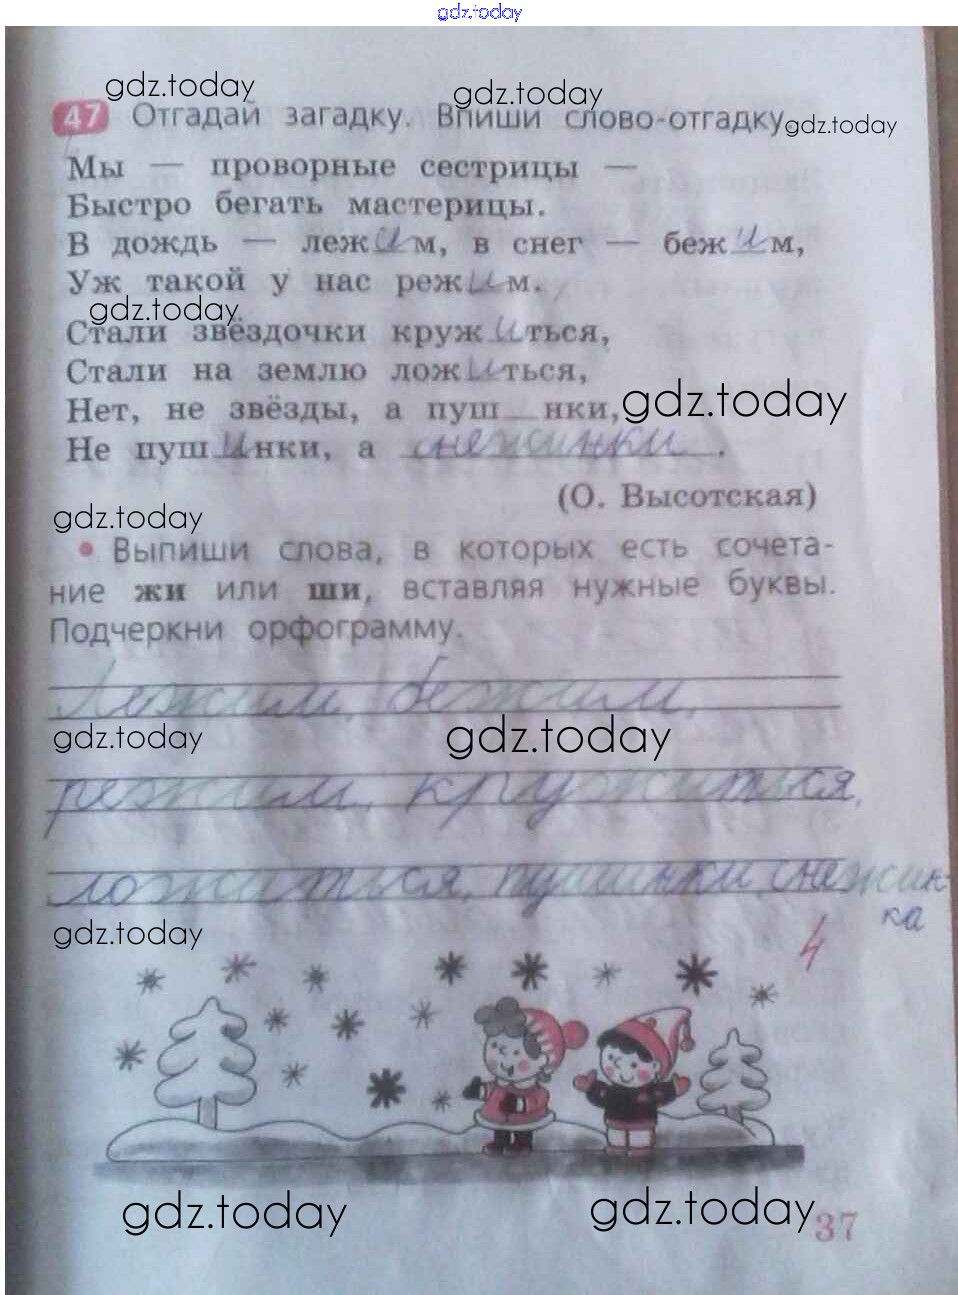 gdz.today
gdz.today
gdz.today
47 Отгадай загадку. Впиши слово-отгадку.
gdz.today
Мы — проворные сестрицы —
Быстро бегать мастерицы.
В дождь — лежим, в снег — бежим,
Уж такой у нас режим.
gdz.today
Стали звёздочки кружиться,
Стали на землю ложиться,
Нет, не звёзды, а пуш_нки,
gdz.today
Не пушинки, а снежинки.
(О. Высотская)
gdz.today
• Выпиши слова, в которых есть сочета-
ние жи или ши, вставляя нужные буквы.
Подчеркни орфограмму.
Лежим, бежим,
gdz.today
gdz.today
режим, кружиться,
ложиться, пушинки, снежин-
ка
gdz.today
4
gdz.today
gdz.today
37